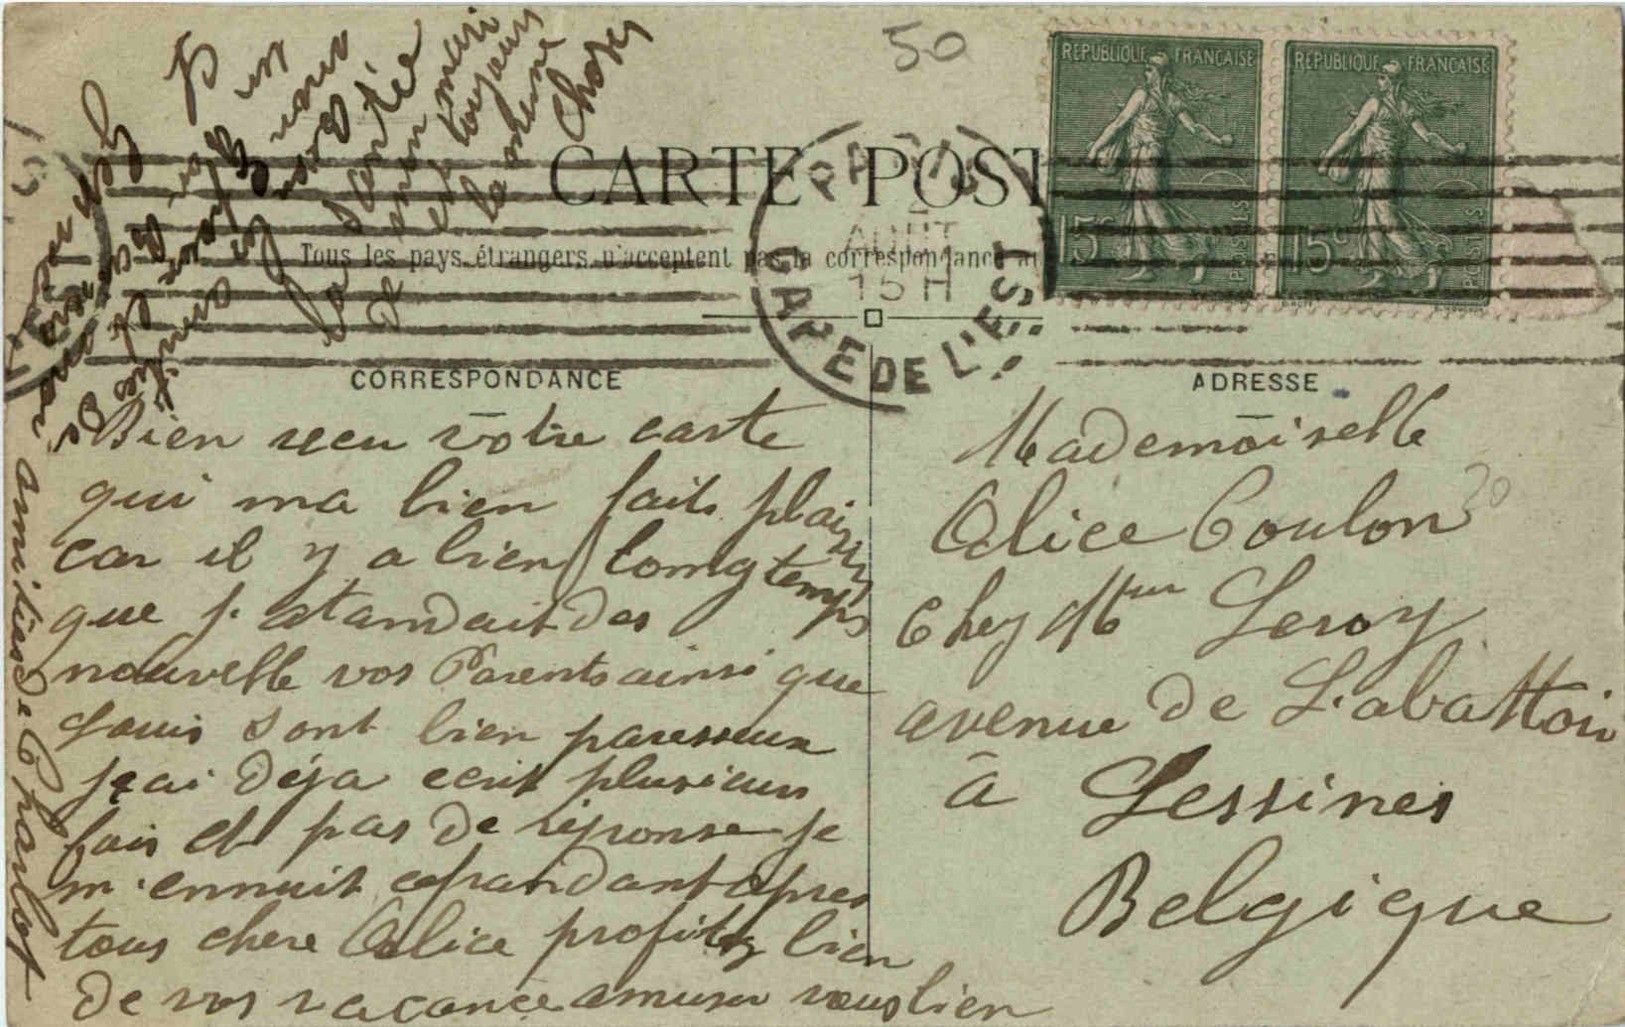 50
REPUBLIQUE FRANÇAISE
REPUBLIQUE FRANÇAISE
15c
15c
POSTES
POSTES
CARTE POST
Tous les pays étrangers n'acceptent pas la correspondance au
PARIS
AOUT
15 H
GARE DE L'EST
CORRESPONDANCE
ADRESSE
Bien recu votre carte
qui ma bien faits plaisir
car il y a bien longtemps
que j. atandait des
nouvelle vos Parents ainsi que
Louis sont bien paresseux
j'ai déja ecrit plusieurs
fois et pas de réponse je
m'ennuit cepandant apres
tous chere Alice profitez bien
de vos vacance amuser vous bien
la santée
mon mari
et toujours
la meme
Choses
amitiés de Charlot
Mademoiselle
Alice Coulon
30
Chez Mme Leroy
avenue de L'abattoir
à Lessines
Belgique